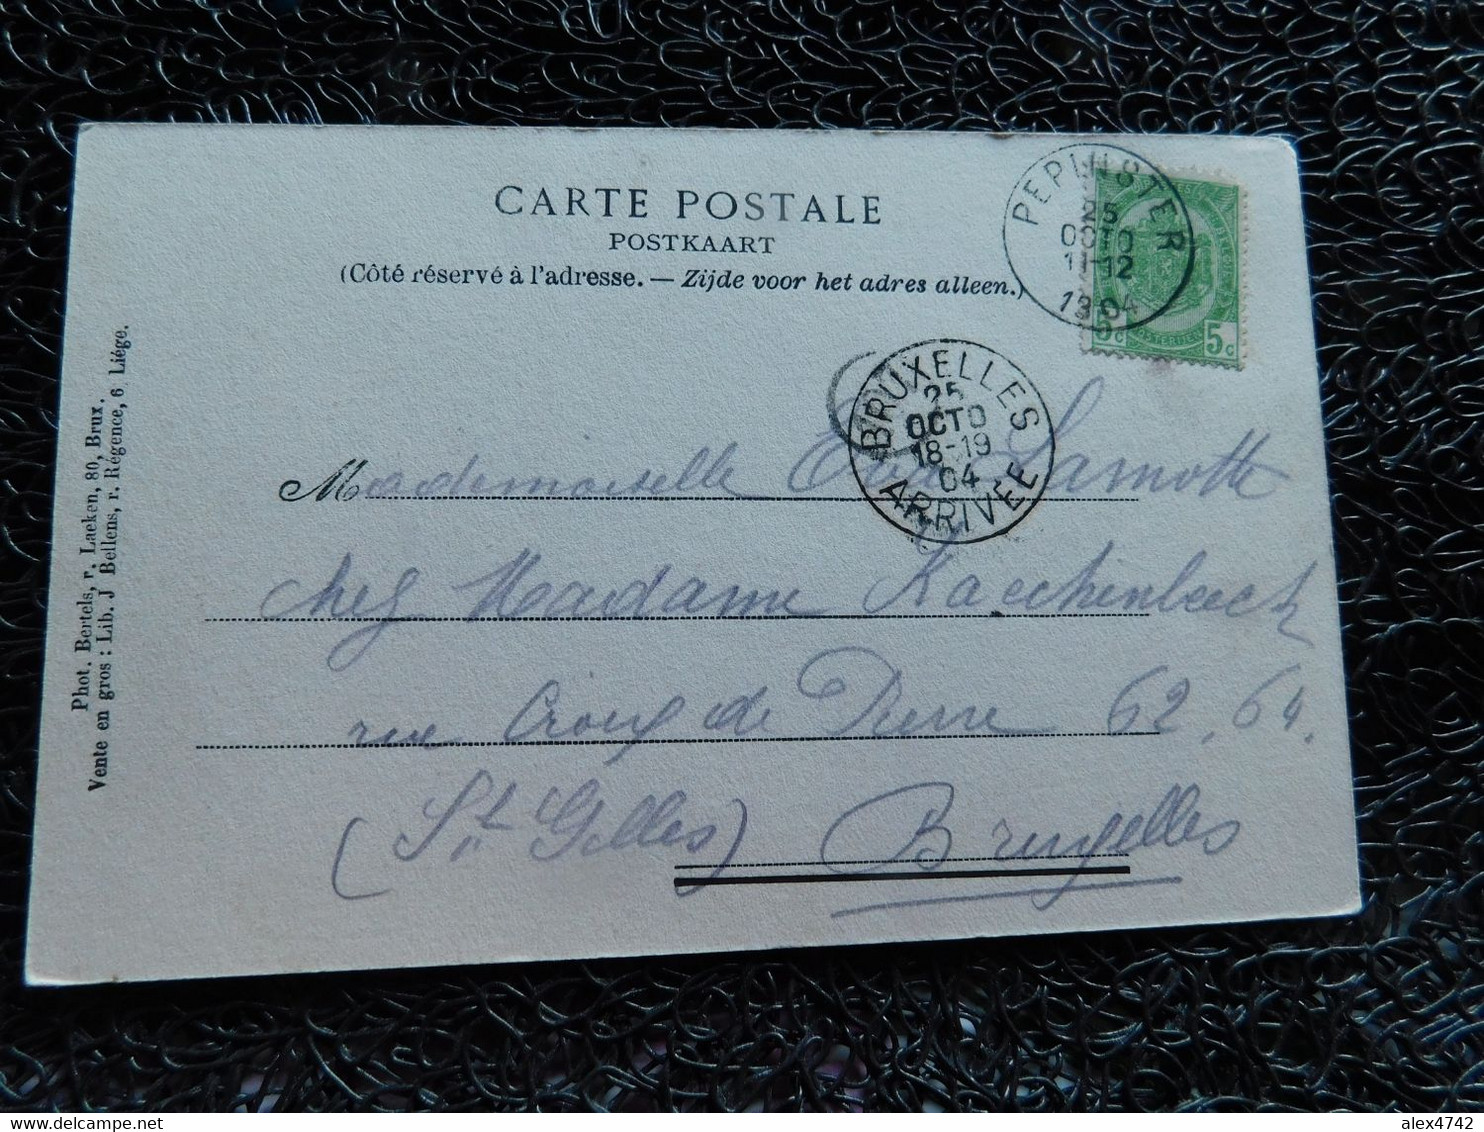 CARTE POSTALE
POSTKAART
(Côté réservé à l'adresse. — Zijde voor het adres alleen.)
PEPINSTER
25
OCTO
11-12
1904
5c 5c
BRUXELLES
25
OCTO
18-19
04
ARRIVÉE
Mademoiselle Lamotte
chez Madame Kaeckenbeeck
rue Croix de Pierre 62, 64.
(St Gilles) Bruxelles
Phot. Bertels, r. Laeken, 80, Brux.
Vente en gros : Lib. J Bellens, r. Régence, 6 Liége.
alex4742